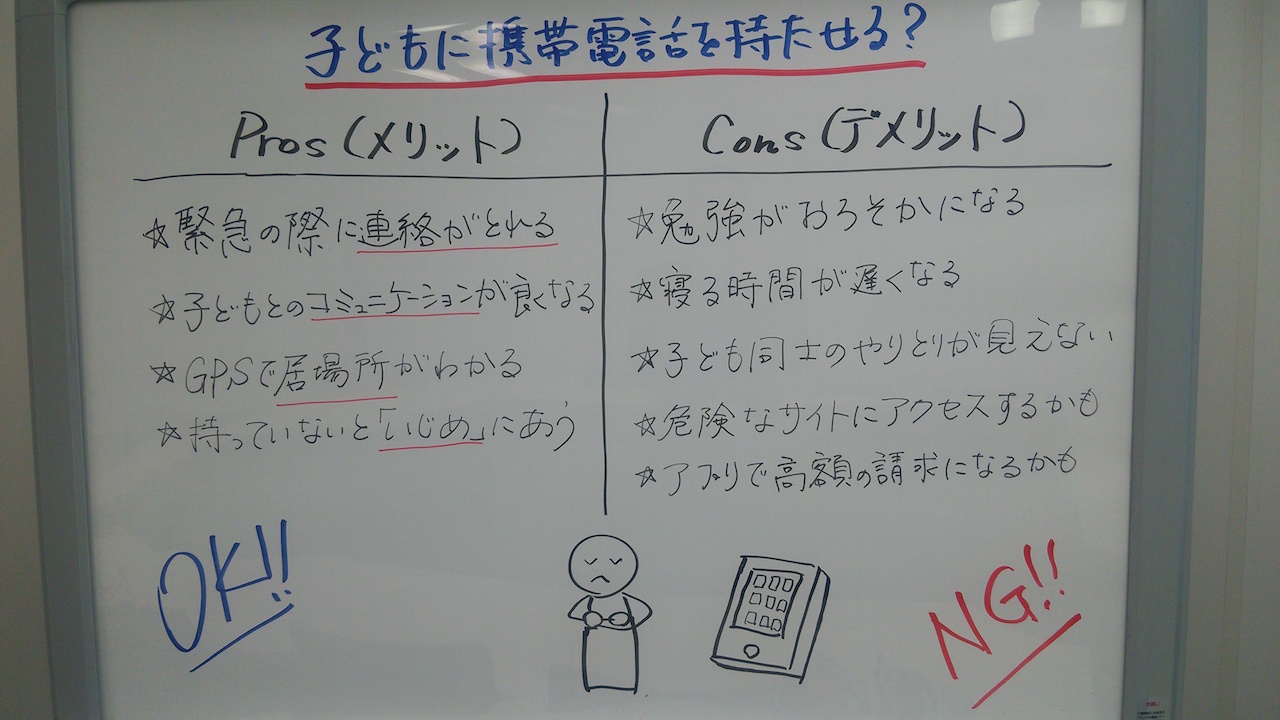 子どもに携帯電話を持たせる?
Pros(メリット)
☆緊急の際に連絡がとれる
☆子どもとのコミュニケーションが良くなる
☆GPSで居場所がわかる
☆持っていないと「いじめ」にあう
OK!!
Cons(デメリット)
☆勉強がおろそかになる
☆寝る時間が遅くなる
☆子ども同士のやりとりが見えない
☆危険なサイトにアクセスするかも
☆アプリで高額の請求になるかも
NG!!